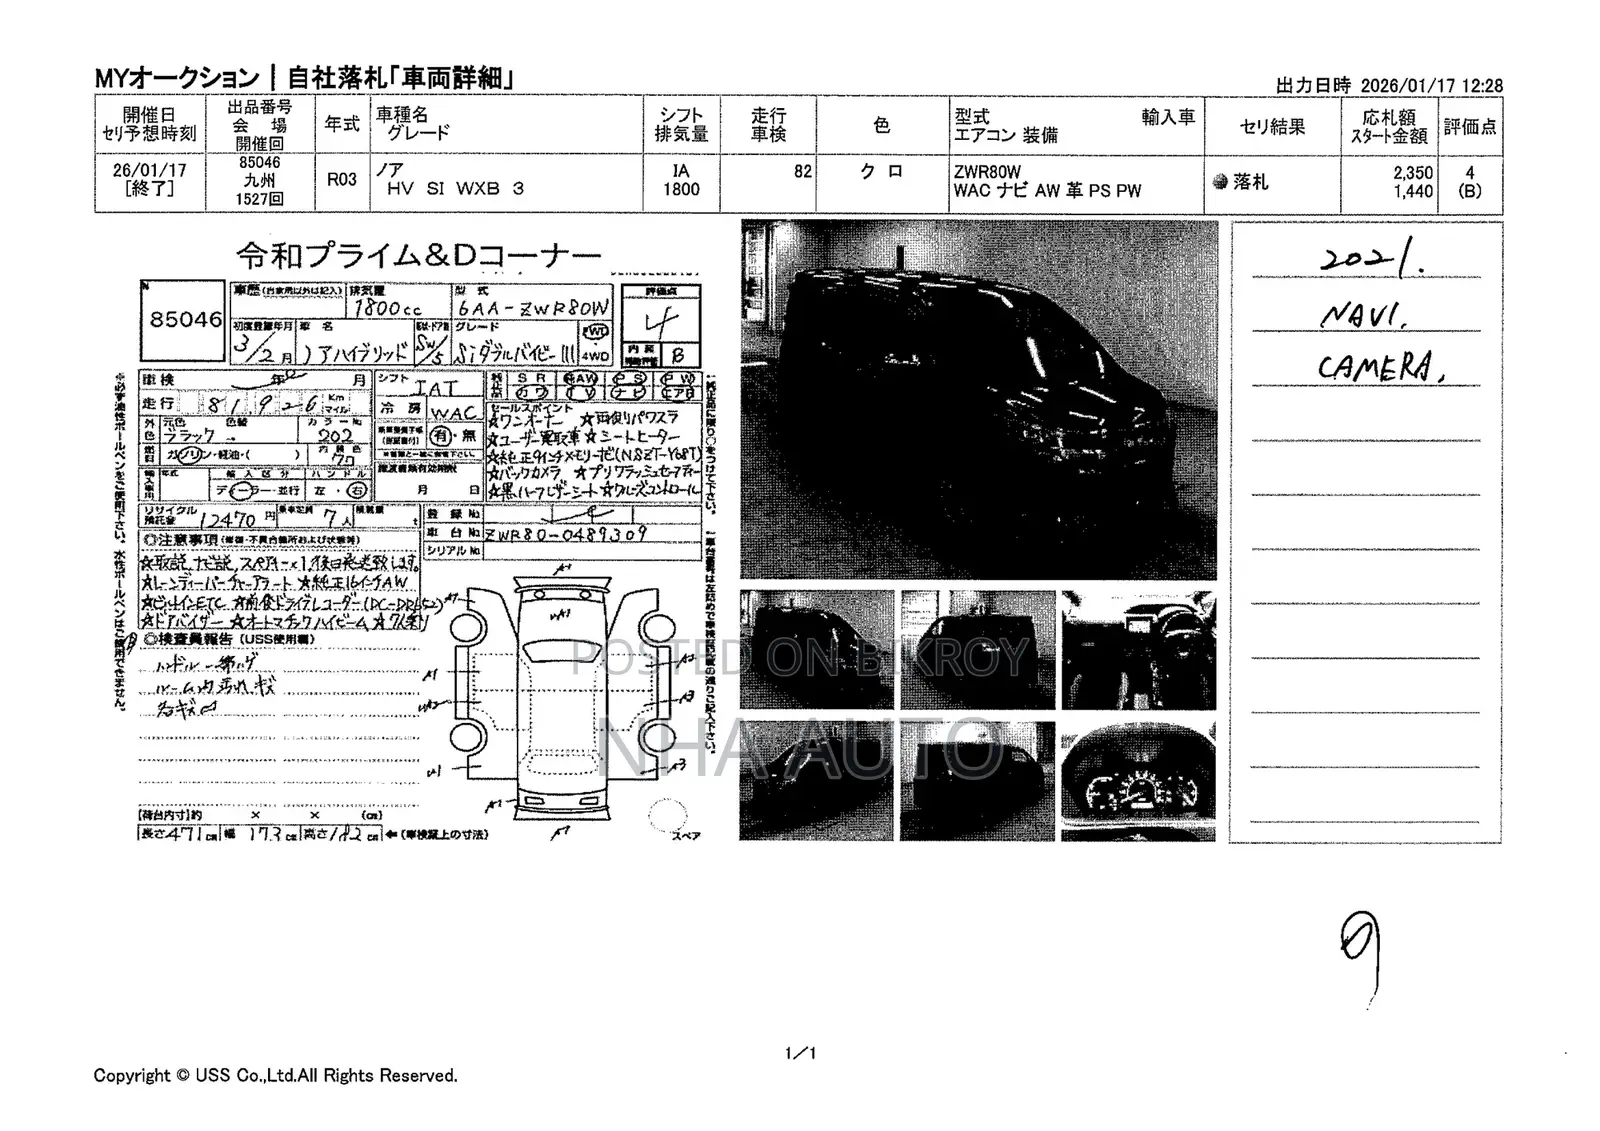 MYオークション｜自社落札「車両詳細」
出力日時 2026/01/17 12:28
開催日
セリ予想時刻
出品番号
会 場
開催回
年式
車種名
グレード
シフト
排気量
走行
車検
色
型式 輸入車
エアコン 装備
セリ結果
応札額
スタート金額
評価点
26/01/17
[終了]
85046
九州
1527回
R03
ノア
HV SI WXB 3
IA
1800
82
クロ
ZWR80W
WAC ナビ AW 革 PS PW
落札
2,350
1,440
4
(B)
令和プライム&Dコーナー
85046
車歴(自家用以外は記入)
排気量
1800cc
型式
6AA-ZWR80W
評価点
4
初度登録年月
3/2月
車名
ノアハイブリッド
SW/5
グレード
Siダブルバイビー III
2WD
4WD
内装
B
車検 年 月
シフト
IAT
SR AW PS PW
カワ TV ナビ エアB
走行 81,926 Km
マイル
冷房 WAC
セールスポイント
☆ワンオーナー ☆両側パワスラ
外色
元色
ブラック
色替
カラーNo
202
有・無
☆ユーザー買取車 ☆シートヒーター
燃料
ガソリン・軽油・( )
内装色
77
☆純正9インチメモリーナビ(NSZT-Y68T)
年式
輸入区分
ハンドル
ディーラー・並行
左・右
月 日
☆バックカメラ ☆プリクラッシュセーフティー
☆黒ハーフレザーシート ☆クルーズコントロール
リサイクル
預託金
12470円
乗車定員 7人
積載量 t
登録No
車台No ZWR80-0489309
シリアルNo
◎注意事項(修復・不具合箇所および状態等)
☆取説、ナビ説、スペアキー×1後日発送致します。
☆レーンディパーチャーアラート ☆純正16インチAW
☆ビルトインETC ☆前後ドライブレコーダー
☆ドアバイザー ☆オートマチックハイビーム ☆7人乗り
◎検査員報告(USS使用欄)
ハンドル一部ハゲ
ルーム内汚れ、キズ
各キズ凹
A1
A1
WA1
A1
A2
A1
WA2
A3
U1
A3
A1
A1
[荷台内寸]約 × × (cm)
長さ471cm 幅 173cm 高さ182cm ←(車検証上の寸法)
スペア
POSTED ON BIKROY
NHA AUTO
2021.
NAVI.
CAMERA.
1/1
Copyright © USS Co.,Ltd.All Rights Reserved.